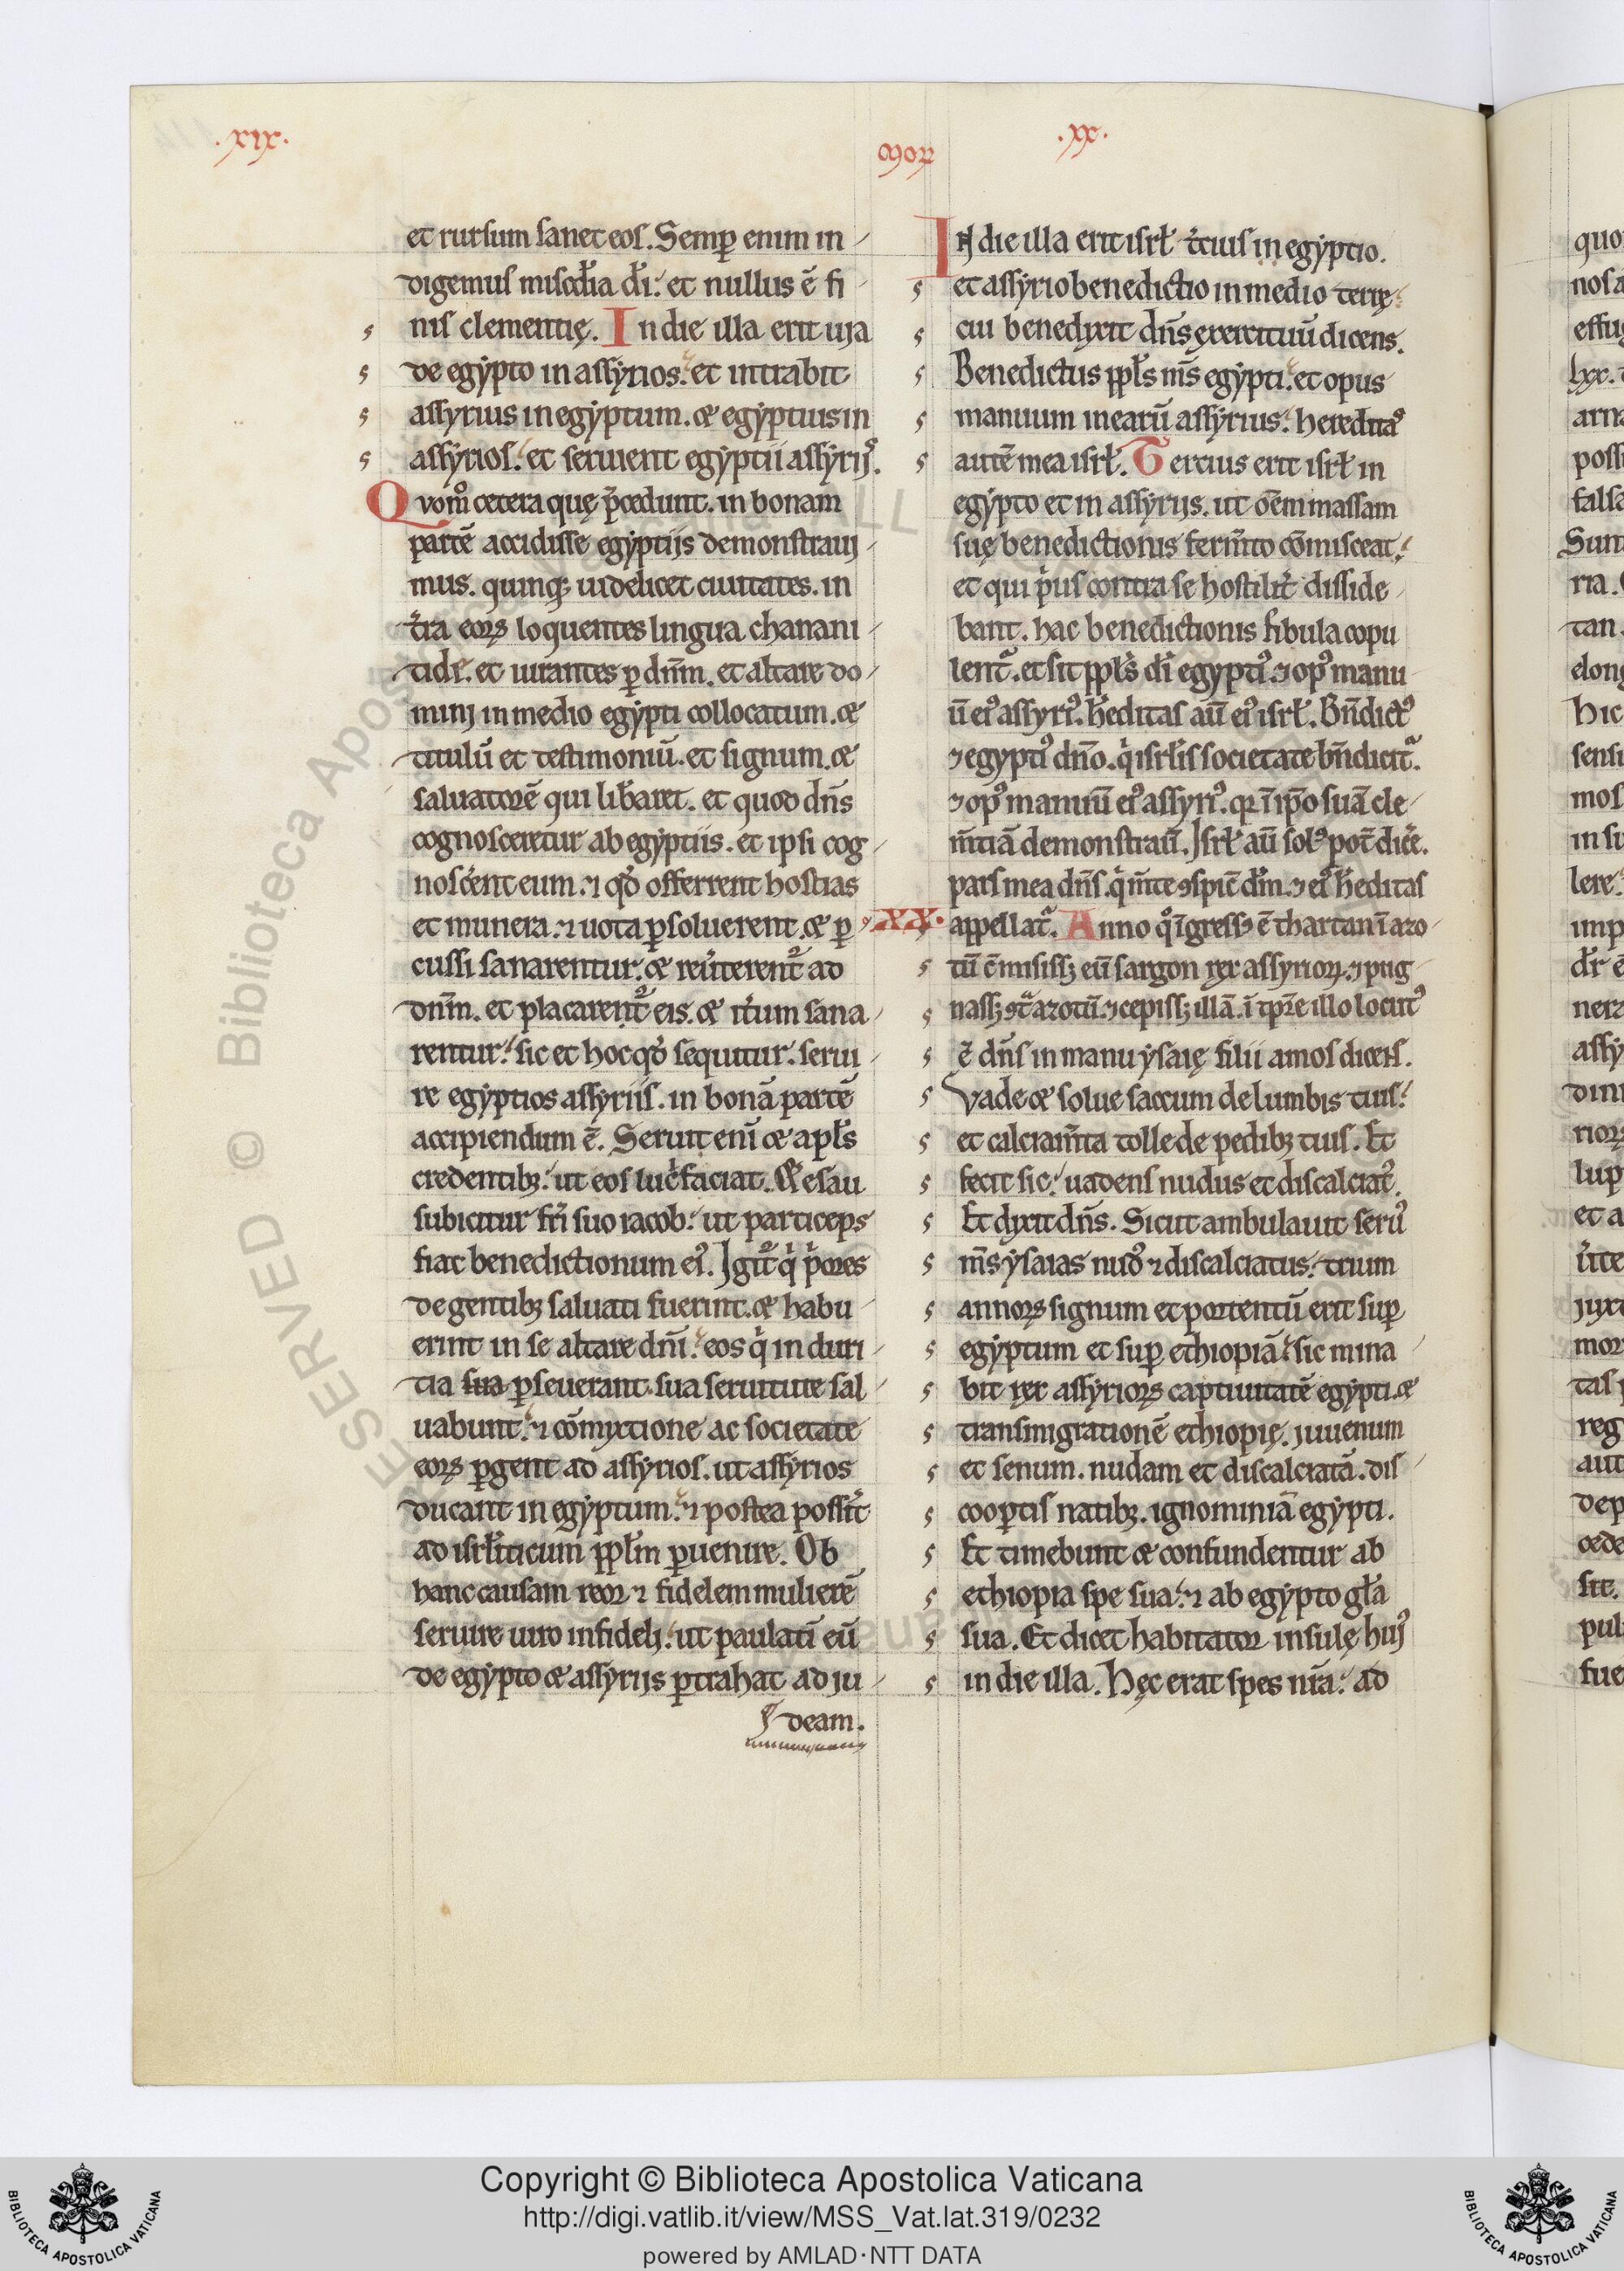 .xix.
.xx.
et rursum sanet eos. Semp enim in
digemus miscd̄ia dī. et nullus ē fi
nis clementię. In die illa erit uia
de egypto in assyrios. et intrabit
assyrius in egyptum. & egyptius in
assyrios. et seruient egyptii assyrijs.
Quom̊ cetera quę p̄cedunt. in bonam
partē accidisse egyptijs demonstraui
mus. quinq; uidelicet ciuitates. in
t̄ra eorꝝ loquentes lingua chanani
tide. et iurantes ꝑ dn̄m. et altare do
minj in medio egypti collocatum. &
titulū et testimoniū. et signum. &
saluatorē qui lib̄aret. et quod dn̄s
cognosceretur ab egyptiis. et ipsi cog
nosc̄ent eum. ⁊ qđ offerrent hostias
et munera. ⁊ uota ꝑsoluerent. & ꝑ
cussi sanarentur. & reūterent᷑ ad
dn̄m. et placarent᷑ eis. & it̄um sana
rentur. sic et hoc qđ sequitur. serui
re egyptios assyriis. in bonā partē
accipiendum ē. Seruit enī & apl̄s
credentibꝫ. ut eos luc̄faciat. & esau
subicitur fr̄i suo iacob. ut particeps
fiat benedictionum eiꝰ. Igit᷑ qͥ pͥores
de gentibꝫ saluati fuerint. & habu
erint in se altare dn̄i. eos qͥ in duri
tia sua ꝑseuerant. sua seruitute sal
uabunt. ⁊ cōmyxtione ac societate
eorꝝ ꝑgent ad assyrios. ut assyrios
ducant in egyptum. ⁊ postea possint
ad isrl̄iticum ppl̄m ꝑuenire. Ob
hanc causam reor ⁊ fidelem mulierē
seruire uiro infidelj. ut paulatī eū
de egypto & assyrijs ꝑtrahat ad ju
deam.
In die illa erit isrl̄ t̄cius in egyptio.
et assyrio benedictio in medio terrę.
cui benedyxit dn̄s exercituū dicens.
Benedictus ppl̄s m̄s egypti. et opus
manuum mearū assyrius. hereditaꝰ
autē mea isrl̄. Tercius erit isrl̄ in
egypto et in assyrijs. ut oēm massam
suę benedictionis ferm̄to cōmisceat.
et qui pͥus contra se hostilit̄ disside
bant. hac benedictionis fibula copu
lent᷑. et sit ppl̄s dī egyptiꝰ. ⁊ opꝰ manu
ū eiꝰ assyriꝰ. h̄editas aū eiꝰ isrl̄. Bn̄dictꝰ
⁊ egyptiꝰ dn̄o. qͥ isrl̄is societate bn̄dicit᷑.
⁊ opꝰ manuū eiꝰ assyriꝰ. qꝛ ī ip̄o suā cle
m̄tiā demonstrauit. Isrl̄ aū solꝰ pot̄ dic̄e.
pars mea dn̄s. qͥ m̄te ꝯspic̄ dm̄. ⁊ eiꝰ h̄editas
.XX. appellat᷑. Anno qͦ īgressꝰ ē thartan ī azo
tū c̄ misissꝫ eū sargon rex assyrioꝝ. ⁊ pug
nassꝫ ꝯt̄ azotū. ⁊ cepissꝫ illā. ī tp̄re illo locutꝰ
ē dn̄s in manu ysaię filii amos dicens.
Vade & solue saccum de lumbis tuis.
et calciam̄ta tolle de pedibꝫ tuis. Et
fecit sic. uadens nudus et discalciatꝰ.
Et dyxit dn̄s. Sicut ambulauit seruꝰ
m̄s ysaias nudꝰ ⁊ discalciatus. trium
annorꝝ signum et portentū erit suꝑ
egyptum et suꝑ ethiopiā. sic mina
bit rex assyriorꝝ captiuitatē egypti. &
transmigrationē ethiopię. juuenum
et senum. nudam et discalciatā. dis
cooꝑtis natibꝫ. ignominiā egypti.
Et timebunt & confundentur ab
ethiopia spe sua. ⁊ ab egypto gl̄a
sua. Et dicet habitator insulę huiꝰ
in die illa. Hęc erat spes nr̄a. ad
Copyright © Biblioteca Apostolica Vaticana
http://digi.vatlib.it/view/MSS_Vat.lat.319/0232
powered by AMLAD·NTT DATA